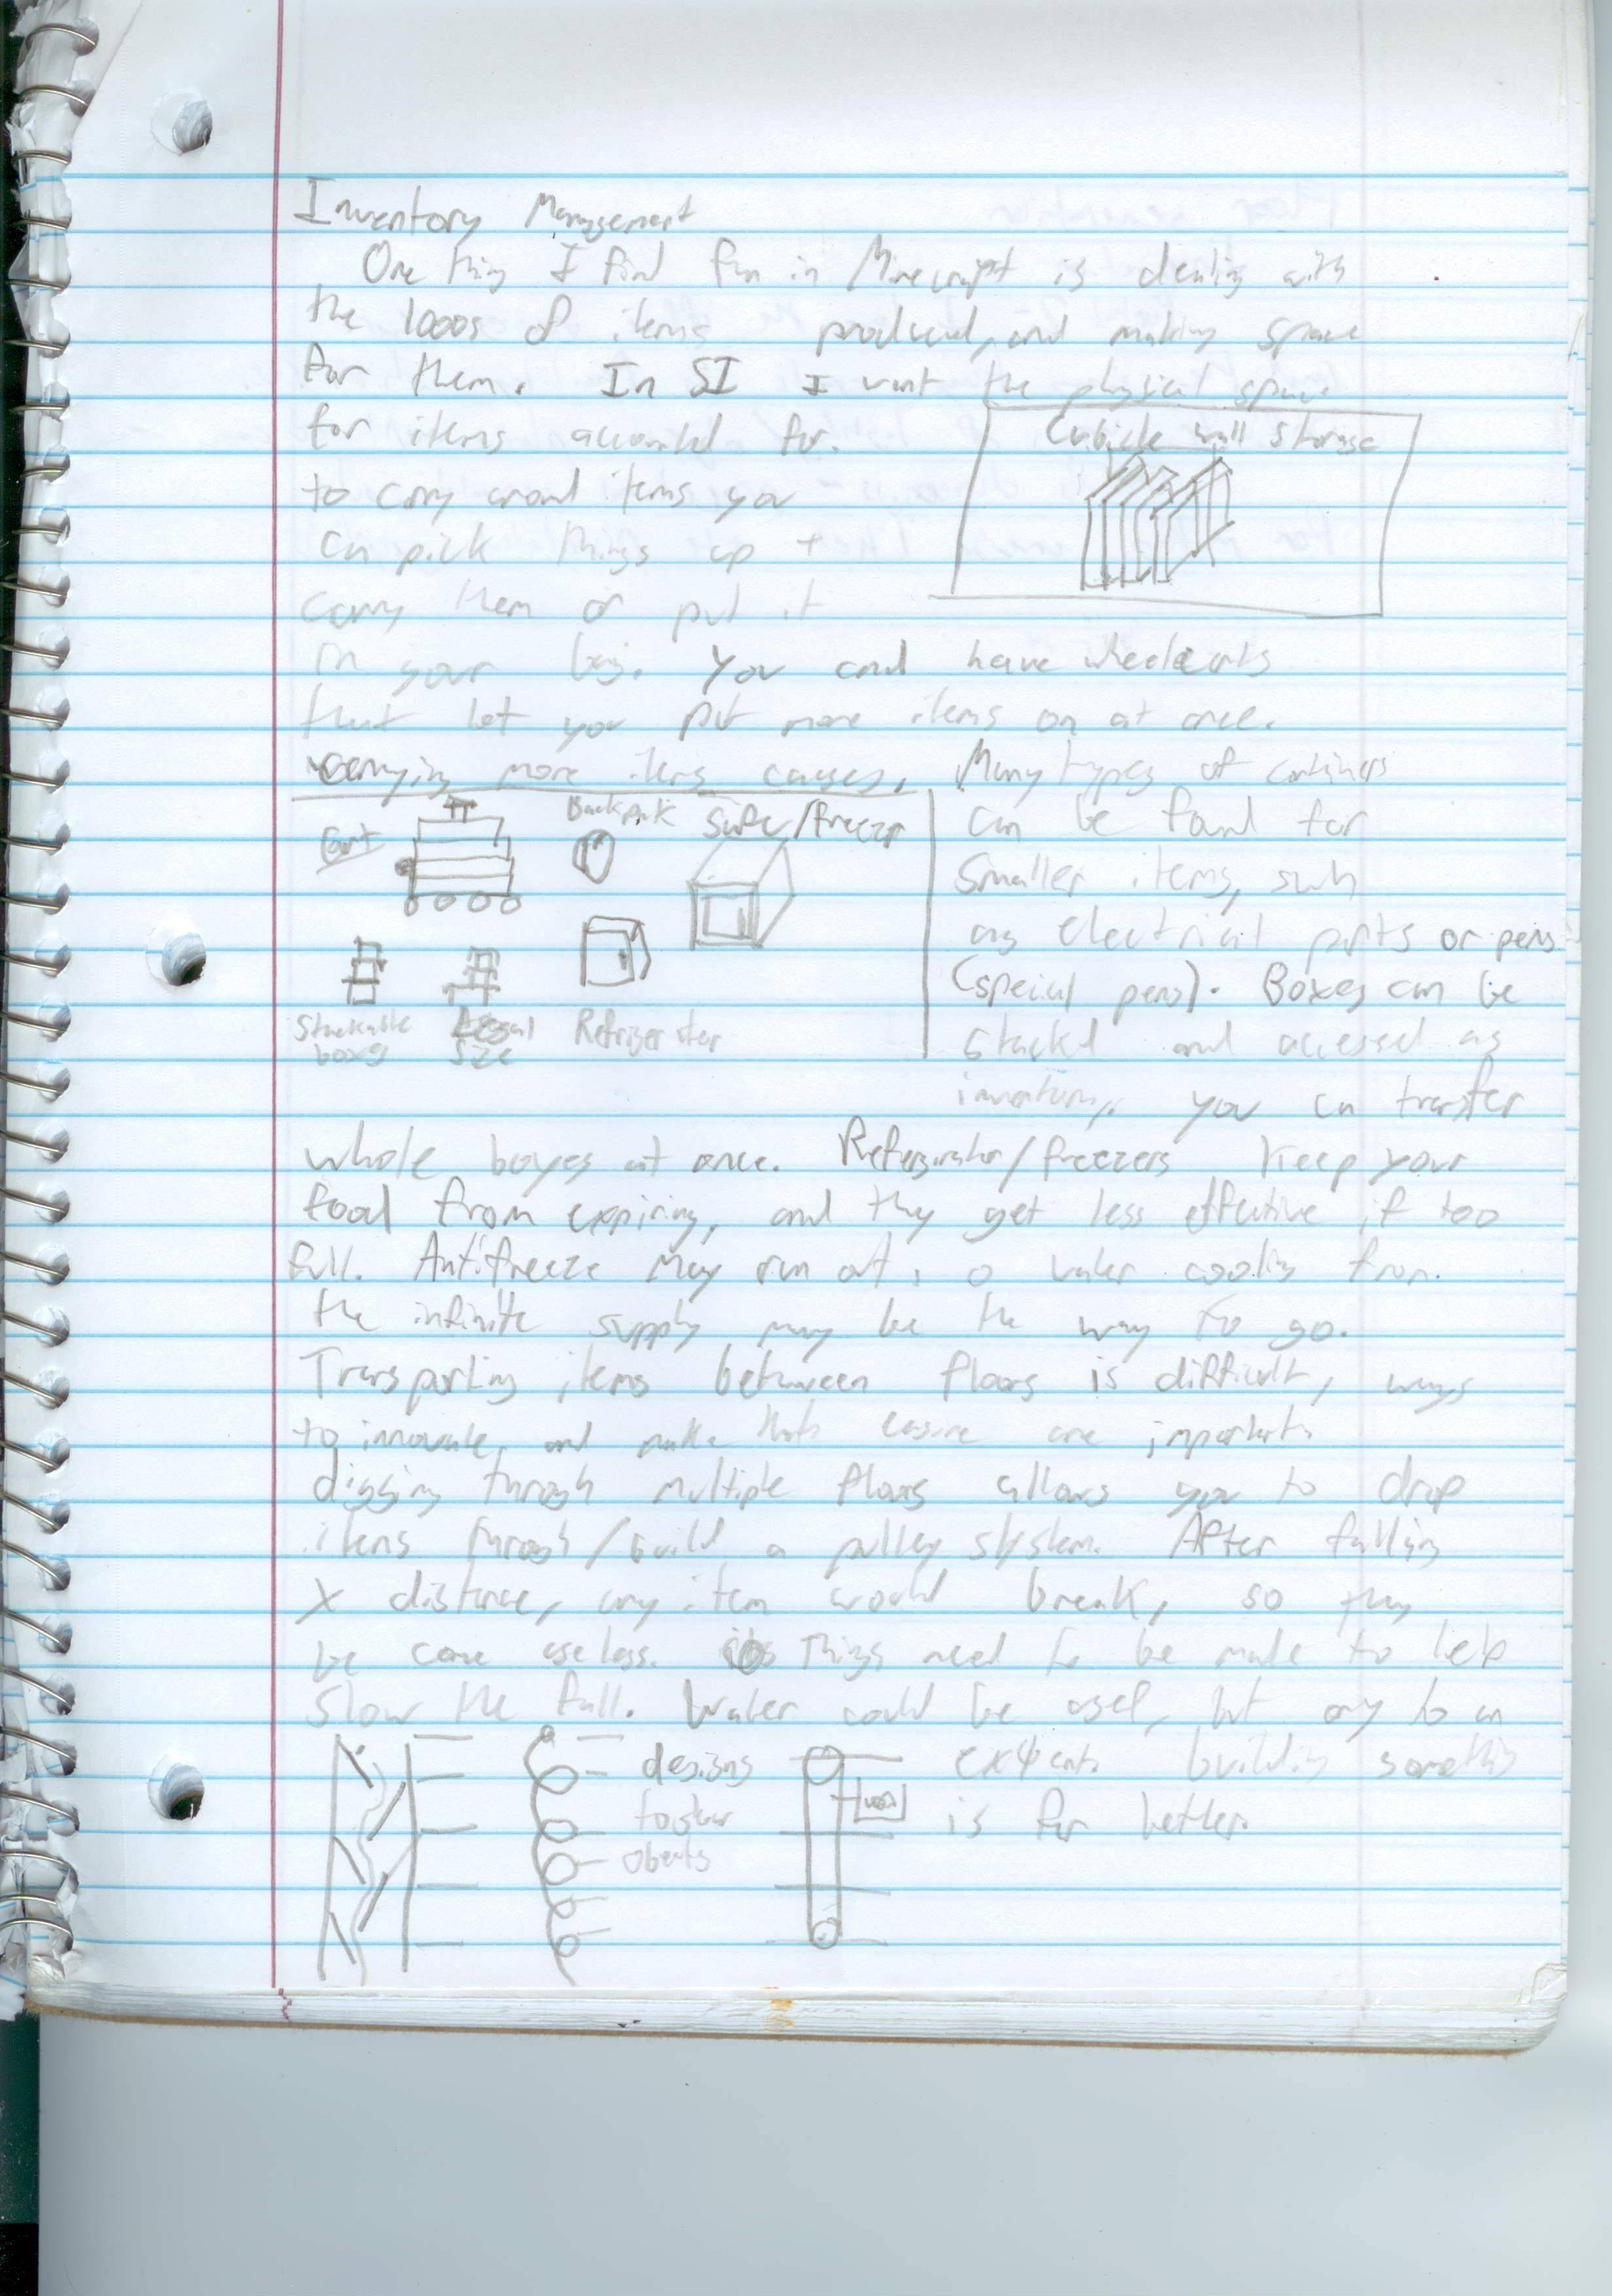 Inventory Management
One thing I find fun in Minecraft is dealing with
the 1000s of items produced, and making space
for them. In SI I want the physical space
for items accounted for.
Cubicle wall storage
to carry around items you
can pick things up +
carry them or put it
in your bag. You could have wheelcarts
that let you put more items on at once.
carrying more items causes. Many types of containers
Cart
Backpack
Safe/freezer
Stackable
boxes
Legal
Size
Refrigerator
can be found for
smaller items, such
as electrical parts or pens
(special pens). Boxes can be
stacked and accessed as
inventory, you can transfer
whole boxes at once. Refrigirator/freezers keep your
food from expiring, and they get less effective if too
full. Antifreeze may run out, o water cooling from
the infinite supply may be the way to go.
Transporting items between floors is difficult, ways
to innovate and make that easire are important.
digging through multiple floors allows you to drop
items through/build a pulley system. After falling
X distance, any item would break, so they
be come useless. Things need to be made to help
slow the fall. Water could be used, but only to an
designs
to slow
obects
extent. building something
is far better.